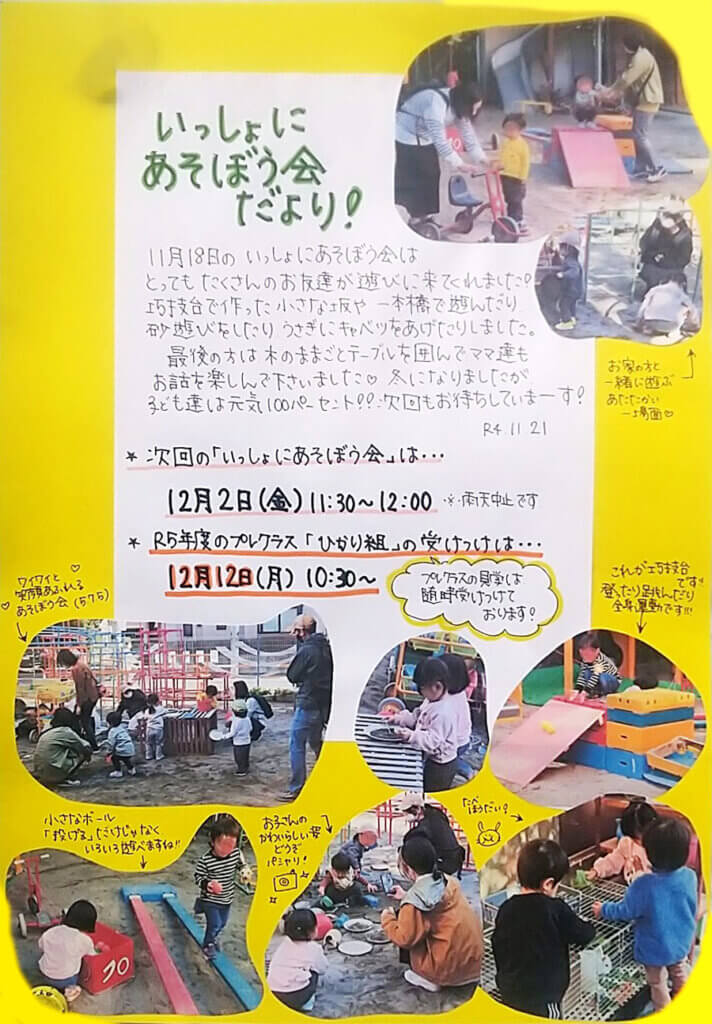 いっしょに
あそぼう会
だより！
11月18日の いっしょにあそぼう会は
とっても たくさんのお友達が 遊びに来てくれました！
巧技台で作った 小さな坂や 一本橋で遊んだり
砂遊びをしたり うさぎにキャベツをあげたりしました。
最後の方は 木のままごとテーブルを囲んで ママ達も
お話を楽しんで下さいました♡ 冬になりましたが
子ども達は元気100パーセント!?：次回もお待ちしていまーす！
R4.11.21
お家の方と
一緒に遊ぶ
あたたかい
一場面♡
* 次回の「いっしょにあそぼう会」は・・・
12月2日(金) 11:30～12:00 ※雨天中止です
* R5年度のプレクラス「ひかり組」の受けつけは・・・
12月12日(月) 10:30～
プレクラスの見学は
随時受けつけて
おります！
ワイワイと
笑顔あふれる
あそぼう会(575)
これが巧技台
です!!
登ったり跳んだり
全身運動です!!
小さなボール
「投げる」だけじゃなく
いろいろ遊べますね!!
お子さんの
かわいらしい姿
どうぞ
パシャリ！
10
10